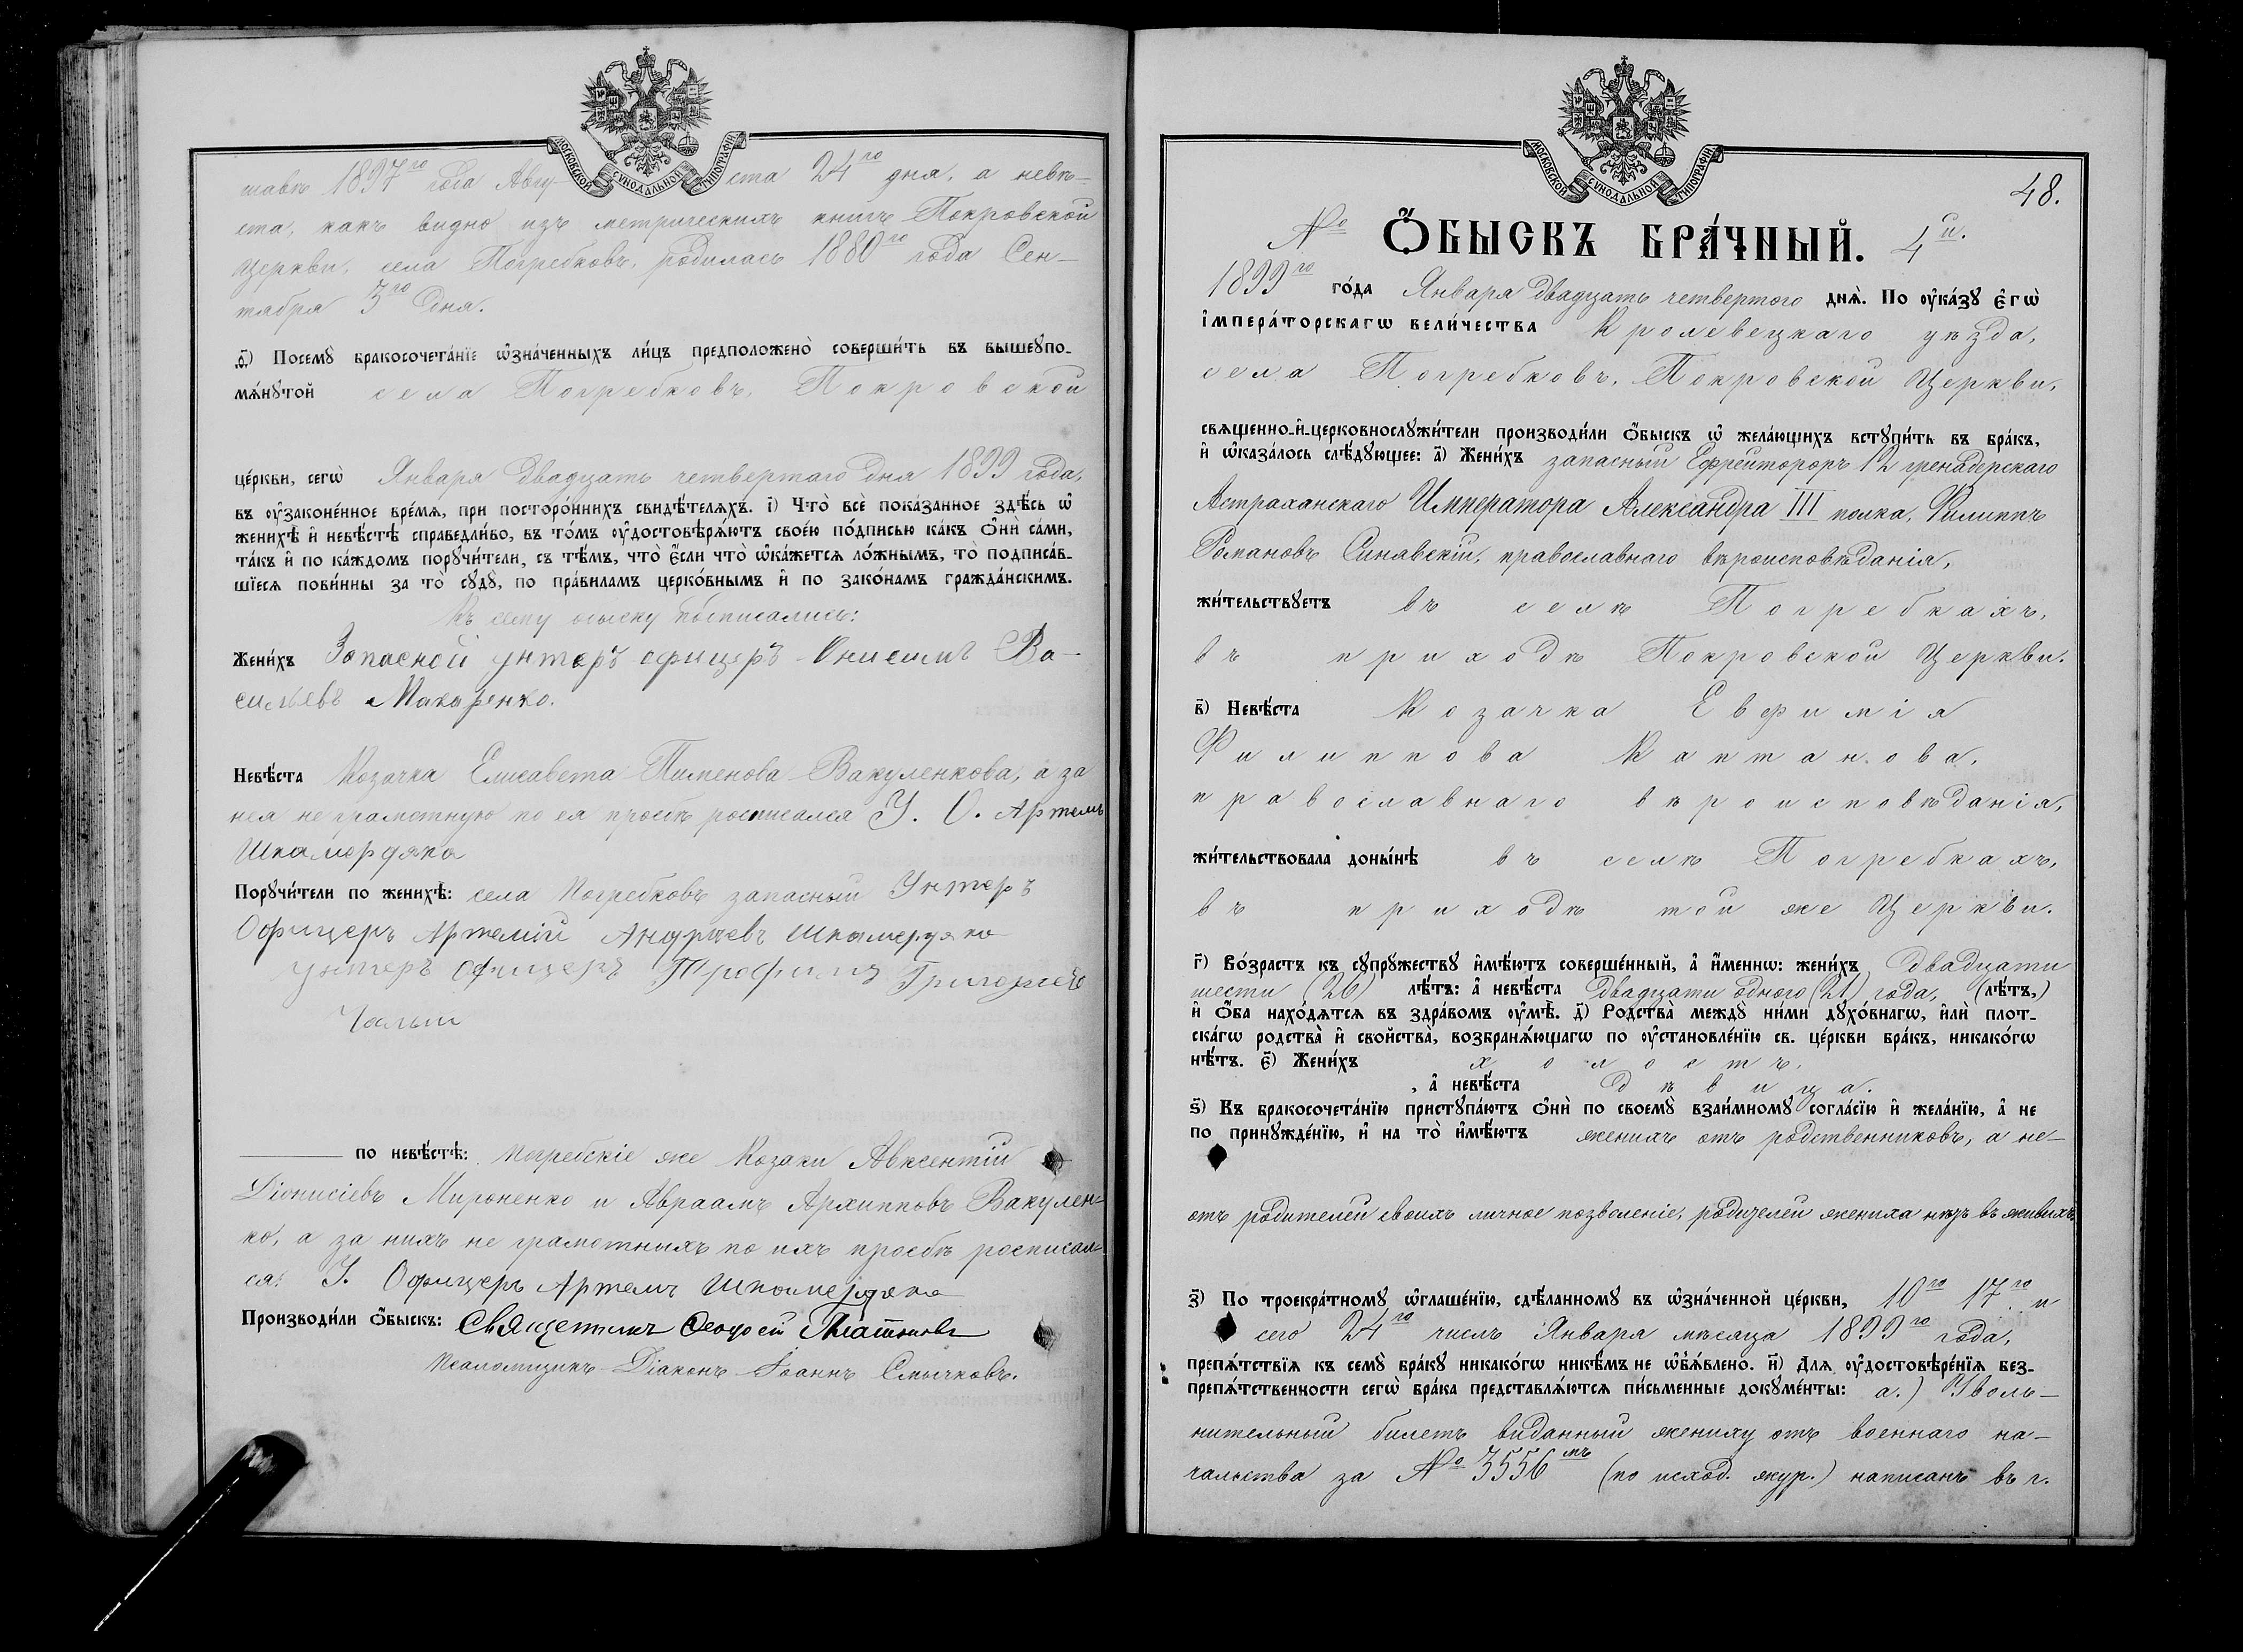 МОСКОВСКОЙ СѴНОДАЛЬНОЙ ТИПОГРАФІИ.
ставъ 1897го года Авгу- ста 24го дня, а невѣ-
ста, какъ видно изъ метрическихъ книгъ Покровской
церкви, села Погребковъ, родилась 1880го года Сен-
тября 3го дня.
Посемꙋ̀ бракосочета́нїе ѡ҆зна́ченныхъ ли́цъ предположено̀ соверши́ть въ вышеꙋпо-
мѧ́нꙋтой села Погребковъ, Покровской
це́ркви, сегѡ̀ Января двадцать четвертаго дня 1899 года,
въ ᲂу҆законе́нное вре́мѧ, при посторо́ннихъ свидѣ́телѧхъ. і҃) Что̀ всѐ пока́занное здѣ́сь ѡ҆
женихѣ̀ и҆ невѣ́стѣ справедли́во, въ то́мъ ᲂу҆достовѣрѧ́ютъ свое́ю по́дписью ка́къ ѻ҆нѝ са́ми,
та́къ и҆ по ка́ждомъ порꙋчи́тели, съ тѣ́мъ, что̀ є҆́сли что̀ ѡ҆ка́жетсѧ ло́жнымъ, то̀ подписа́в-
шїесѧ пови́нны за то̀ сꙋдꙋ̀, по пра́виламъ церко́внымъ и҆ по зако́намъ гражда́нскимъ.
Къ сему обыску подписались:
Жени́хъ Запасной унтеръ офицеръ Онисимъ Ва-
сильевъ Макаренко.
Невѣ́ста Козачка Елисавета Пименова Вакуленкова, а за
нея не грамотную по ея просьбѣ росписался У. О. Артемъ
Шкамердяка
Порꙋчи́тели по женихѣ̀: села Погребковъ запасный Унтеръ
Офицеръ Артемій Андреевъ Шкамердяка
унтеръ офицеръ Трофимъ Григорьевъ
по невѣ́стѣ: Погребскіе же Козаки Авксентій
Діонисіевъ Мироненко и Авраамъ Архипповъ Вакулен-
ко, а за нихъ не грамотныхъ по ихъ просьбѣ росписал-
ся: У. Офицеръ Артемъ Шкамердяка
Производи́ли ѻ҆́быскъ: Священникъ Ѳеофей Платоновъ
Псаломщикъ-Діаконъ Іоаннъ Смычковъ.
МОСКОВСКОЙ СѴНОДАЛЬНОЙ ТИПОГРАФІИ.
48.
№ Ѻ҆́БЫСКЪ БРА́ЧНЫЙ. 4й.
1899го го́да Января двадцать четвертого днѧ̀. По ᲂу҆ка́зꙋ є҆гѡ̀
і҆мпера́торскагѡ вели́чества Кролевецкаго уѣзда,
села Погребковъ, Покровской Церкви,
свѧщенно-и҆-церковнослꙋжи́тели производи́ли ѻ҆́быскъ ѡ҆ жела́ющихъ встꙋпи́ть въ бра́къ,
и҆ ѡ҆каза́лось слѣ́дꙋющее: а҃) Жени́хъ запасный Ефрейтороръ 12 гренадерскаго
Астраханскаго Императора Александра III полка, Филиппъ
Романовъ Синявскій, православнаго вѣроисповѣданія,
жи́тельствꙋетъ въ селѣ Погребкахъ,
въ приходѣ Покровской Церкви.
в҃) Невѣ́ста Козачка Евфимія
Филиппова Каптанова,
православнаго вѣроисповѣданія,
жи́тельствовала доны́нѣ въ селѣ Погребкахъ,
въ приходѣ той же Церкви.
г҃) Во́зрастъ къ сꙋпрꙋ́жествꙋ и҆мѣ́ютъ соверше́нный, а҆ и҆́меннѡ: жени́хъ двадцати
шести (26) лѣ́тъ: а҆ невѣ́ста двадцати одного (21) года, (лѣ́тъ,)
и҆ ѻ҆́ба нахо́дѧтсѧ въ здра́вомъ ᲂу҆мѣ̀. д҃) Родства̀ междꙋ̀ ни́ми дꙋхо́внагѡ, и҆лѝ плот-
ска́гѡ родства̀ и҆ свойства̀, возбранѧ́ющагѡ по ᲂу҆становле́нїю св. це́ркви бра́къ, никако́гѡ
нѣ́тъ. є҃) Жени́хъ холостъ,
, а҆ невѣ́ста дѣвица.
ѕ҃) Къ бракосочета́нїю пристꙋпа́ютъ ѻ҆нѝ по своемꙋ̀ взаи́мномꙋ согла́сїю и҆ жела́нїю, а҆ не
по принꙋжде́нїю, и҆ на то̀ и҆мѣ́ютъ женихъ отъ родственниковъ, а не-
отъ родителей своихъ личное позволеніе, родителей жениха нѣтъ въ живыхъ
з҃) По троекра́тномꙋ ѡ҆глаше́нїю, сдѣ́ланномꙋ въ ѡ҆зна́ченной це́ркви, 10го 17го и
сего 24го числъ Января мѣсяца 1899го года,
препѧ́тствїѧ къ семꙋ̀ бра́кꙋ никако́гѡ никѣ́мъ не ѡ҆б̾ѧ́влено. и҃) Длѧ ᲂу҆достовѣре́нїѧ без-
препѧ́тственности сегѡ̀ бра́ка представлѧ́ютсѧ пи́сьменные докꙋме́нты: а.) Уволь-
нительный билетъ виданный жениху отъ военнаго на-
чальства за № 3556мъ (по исход. жур.) написанъ въ г.